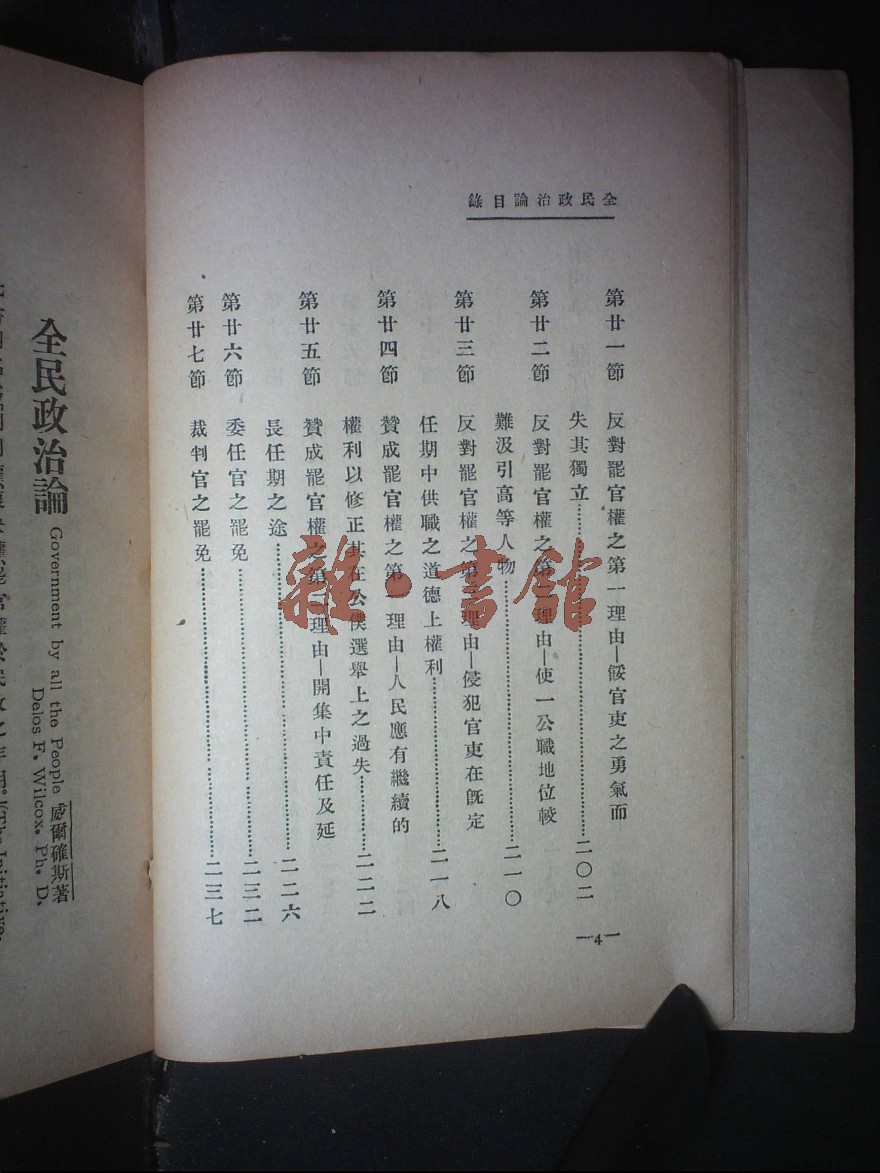 全民政治論目錄
第廿一節 反對罷官權之第一理由—餒官吏之勇氣而
失其獨立……二〇二
第廿二節 反對罷官權之第二理由—使一公職地位較
難汲引高等人物……二一〇
第廿三節 反對罷官權之第三理由—侵犯官吏在既定
任期中供職之道德上權利……二一八
第廿四節 贊成罷官權之第一理由—人民應有繼續的
權利以修正其在公僕選舉上之過失……二二二
第廿五節 贊成罷官權之第二理由—開集中責任及延
長任期之途……二二六
第廿六節 委任官之罷免……二三二
第廿七節 裁判官之罷免……二三七
—4—
雜·書館
全民政治論 Government by all the People 威爾確斯著
Delos F. Wilcox, Ph. D.
(The Initiative,